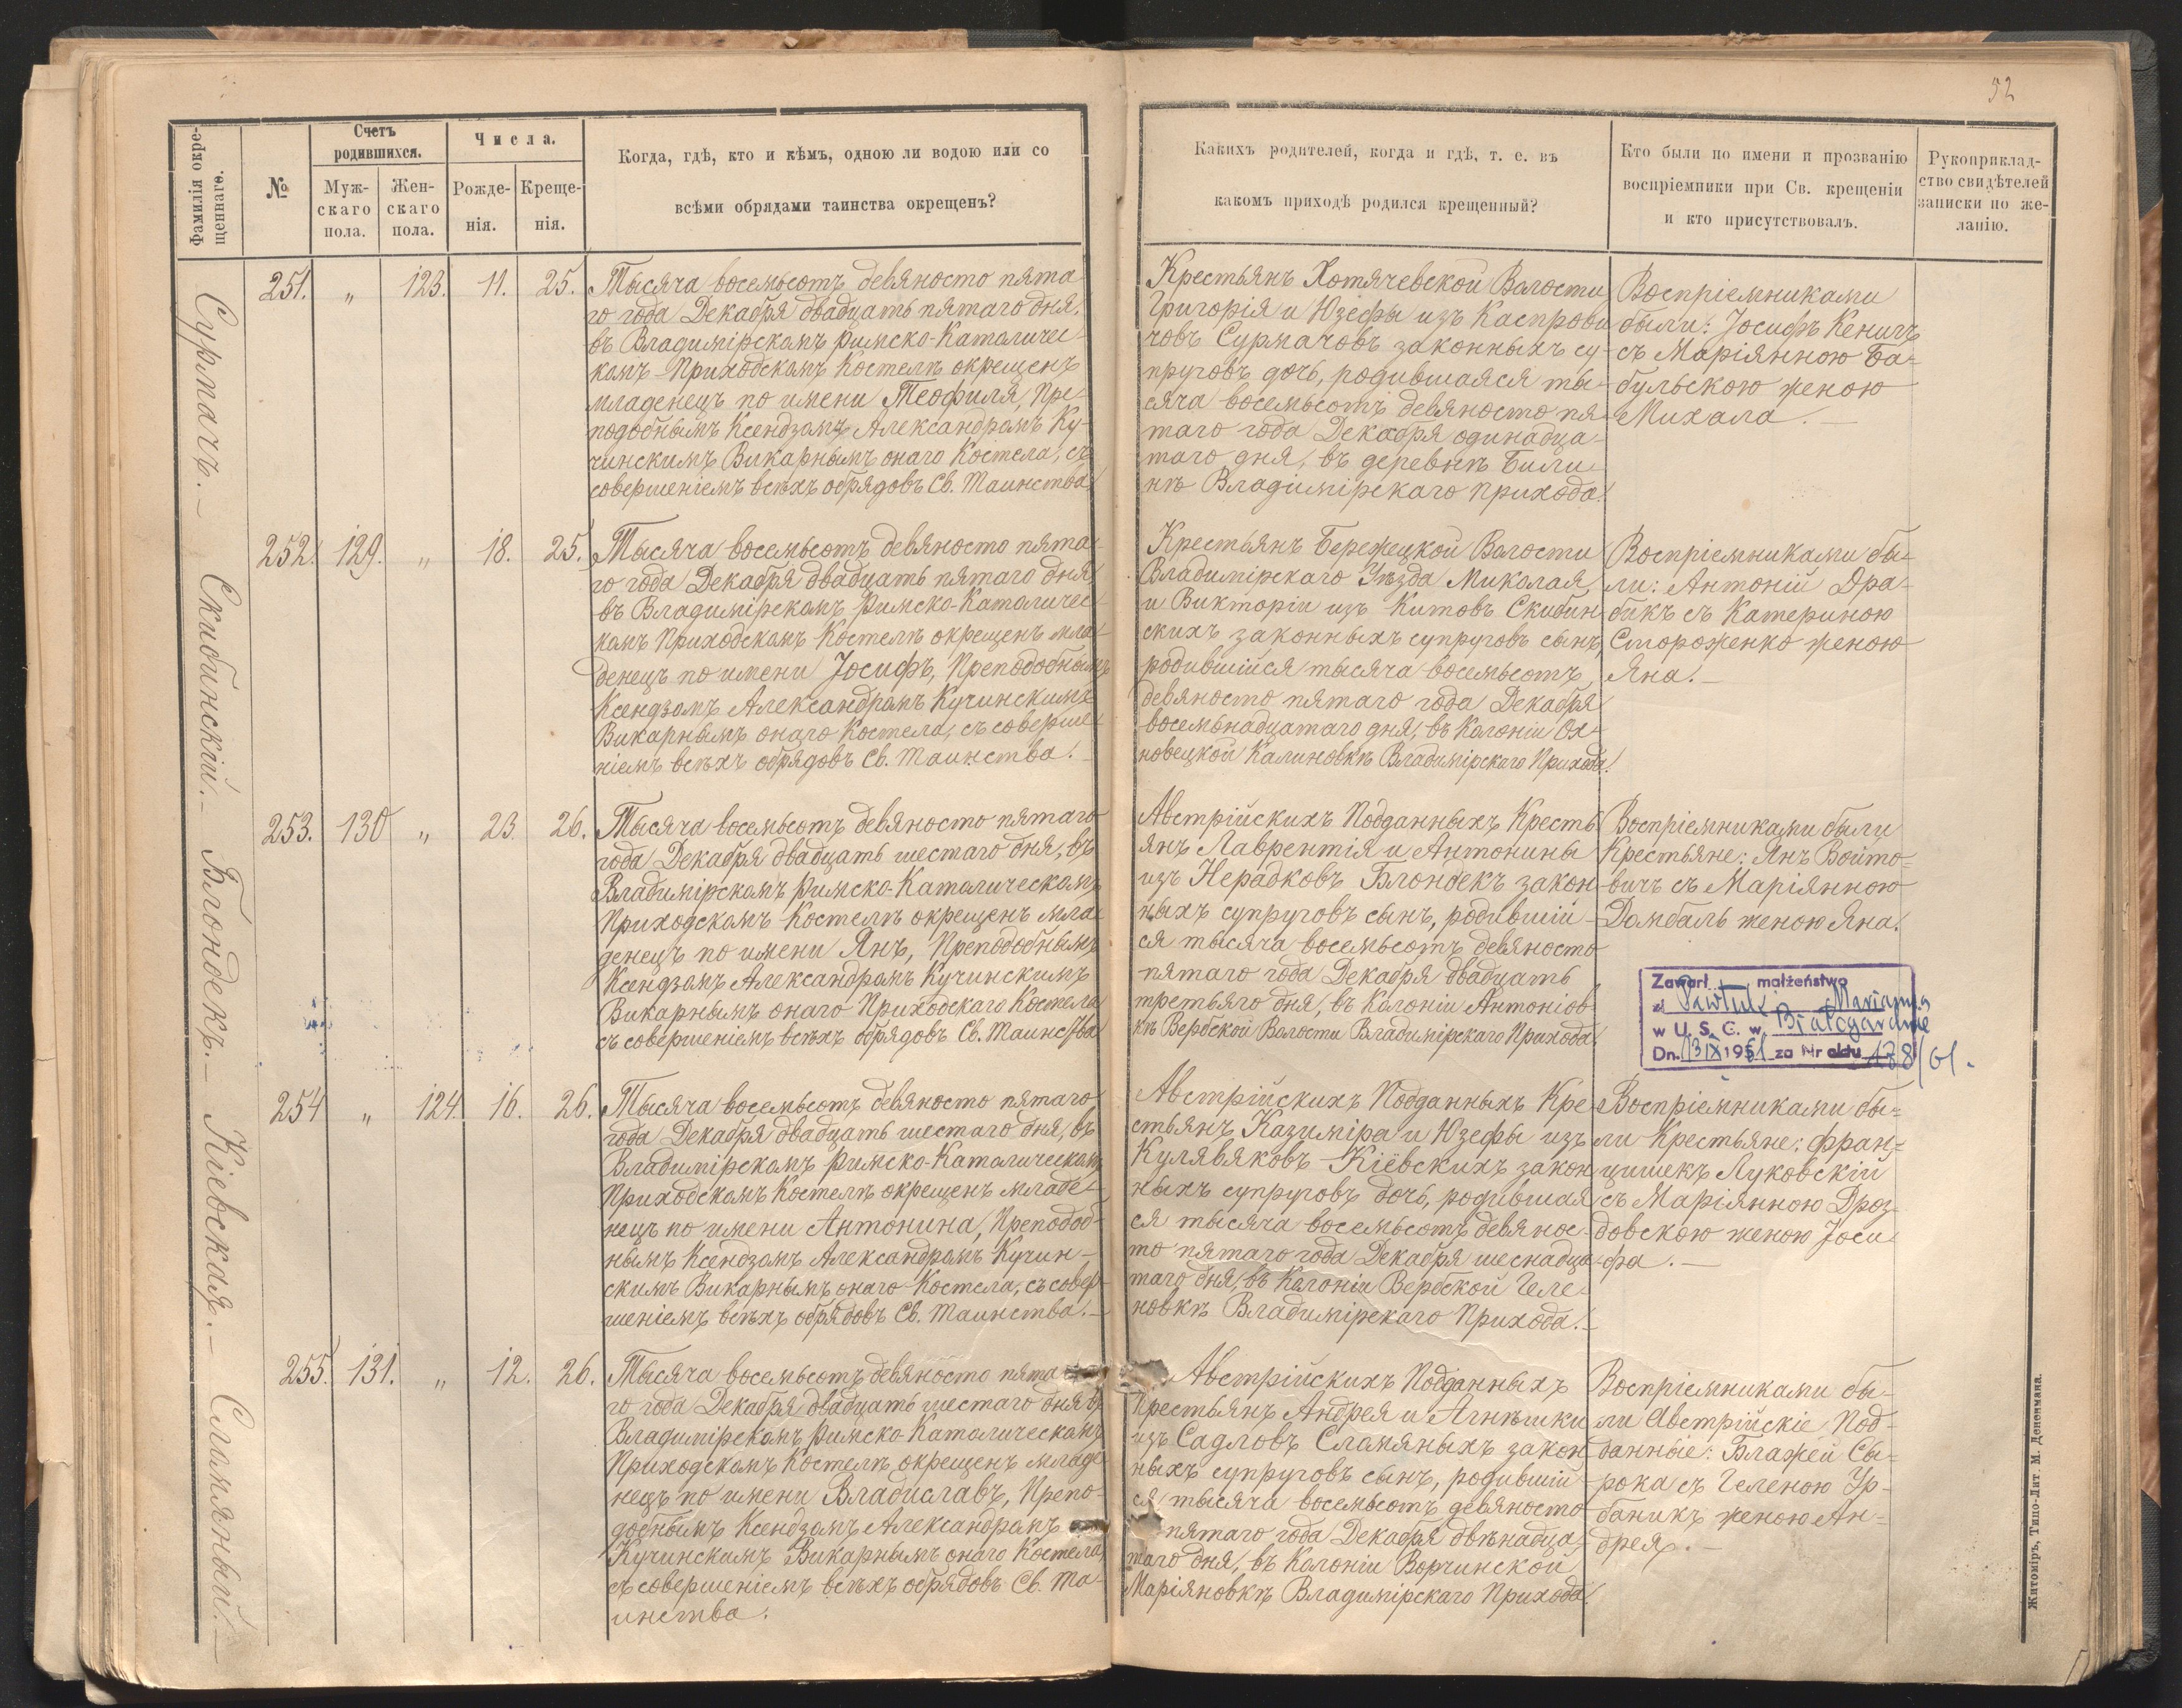 52
Фамилія окре-
щеннаго.
№
Счетъ
родившихся.
Муж-
скаго
пола.
Жен-
скаго
пола.
Числа.
Рожде-
нія.
Креще-
нія.
Когда, гдѣ, кто и кѣмъ, одною ли водою или со
всѣми обрядами таинства окрещенъ?
Какихъ родителей, когда и гдѣ, т. е. въ
какомъ приходѣ родился крещенный?
Кто были по имени и прозванію
воспріемники при Св. крещеніи
и кто присутствовалъ.
Рукоприклад-
ство свидѣтелей
записки по же-
ланію.
Сурмачъ.—
251. „ 123. 11. 25.
Тысяча восемьсотъ девяносто пята-
го года Декабря двадцать пятаго дня,
въ Владимірскомъ Римско-Католичес-
комъ Приходскомъ Костелѣ окрещенъ
младенецъ по имени Теофиля, Пре-
подобнымъ Ксендзомъ Александромъ Ку-
чинскимъ Викарнымъ онаго Костела, съ
совершеніемъ всѣхъ обрядовъ Св. Таинства.
Крестьянъ Хотячевской Волости
Григорія и Юзефы изъ Каспрови
човъ Сурмачовъ законныхъ су-
пруговъ дочь, родившаяся ты-
сяча восемьсотъ девяносто пя-
таго года Декабря одинадца-
таго дня, въ деревнѣ Били-
нѣ Владимірскаго Прихода.
Воспріемниками
были: Іосифъ Кеничъ
съ Маріянною Ба-
бульскою женою
Михала.—
Скибинскій.—
252. 129. „ 18. 25.
Тысяча восемьсотъ девяносто пята-
го года Декабря двадцать пятаго дня,
въ Владимірскомъ Римско-Католичес-
комъ Приходскомъ Костелѣ окрещенъ мла-
денецъ по имени Іосифъ, Преподобнымъ
Ксендзомъ Александромъ Кучинскимъ
Викарнымъ онаго Костела, съ соверше-
ніемъ всѣхъ обрядовъ Св. Таинства.—
Крестьянъ Бережецкой Волости
Владимірскаго Уѣзда Миколая
и Викторіи изъ Китовъ Скибин-
скихъ законныхъ супруговъ сынъ,
родившійся тысяча восемьсотъ
девяносто пятаго года Декабря
восемьнадцатаго дня, въ Колоніи Ох-
новецкой Калиновкѣ Владимірскаго Прихода.
Воспріемниками бы-
ли: Антоній Дра-
бикъ съ Катериною
Стороженко женою
Яна.—
Блондекъ.—
253. 130 „ 23. 26.
Тысяча восемьсотъ девяносто пятаго
года Декабря двадцать шестаго дня, въ
Владимірскомъ Римско-Католическомъ
Приходскомъ Костелѣ окрещенъ мла-
денецъ по имени Янъ, Преподобнымъ
Ксендзомъ Александромъ Кучинскимъ
Викарнымъ онаго Приходскаго Костела
съ совершеніемъ всѣхъ обрядовъ Св. Таинства
Австрійскихъ Подданныхъ Кресть-
янъ Лаврентія и Антонины
изъ Нерадковъ Блондекъ закон-
ныхъ супруговъ сынъ, родившій-
ся тысяча восемьсотъ девяносто
пятаго года Декабря двадцать
третьяго дня, въ Колоніи Антоніов-
кѣ Вербской Волости Владимірскаго Прихода.
Воспріемниками были
Крестьяне: Янъ Войто-
вичъ съ Маріянною
Домбаль женою Яна.
Zawarł małżeństwo
z Pawluk Marianną
w U. S. C. w Białogardzie
Dn. 13 IX 1961 za Nr aktu 138/61.
Кіевская.—
254 „ 124. 16. 26.
Тысяча восемьсотъ девяносто пятаго
года Декабря двадцать шестаго дня, въ
Владимірскомъ Римско-Католическомъ
Приходскомъ Костелѣ окрещенъ младе-
нецъ по имени Антонина, Преподоб-
нымъ Ксендзомъ Александромъ Кучин-
скимъ Викарнымъ онаго Костела, съ совер-
шеніемъ всѣхъ обрядовъ Св. Таинства.—
Австрійскихъ Подданныхъ Кре-
стьянъ Казиміра и Юзефы изъ
Кулявяковъ Кіевскихъ закон-
ныхъ супруговъ дочь, родившая-
ся тысяча восемьсотъ девянос-
то пятаго года Декабря шеснадца-
таго дня, въ Колоніи Вербской Геле-
новкѣ Владимірскаго Прихода.—
Воспріемниками бы-
ли Крестьяне: Фран-
цишекъ Луковскій
съ Маріянною Дроз-
довскою женою Іоси-
фа.—
Сламяный.—
255. 131. „ 12. 26.
Тысяча восемьсотъ девяносто пята-
го года Декабря двадцать шестаго дня въ
Владимірскомъ Римско-Католическомъ
Приходскомъ Костелѣ окрещенъ младе-
нецъ по имени Владиславъ, Препо-
добнымъ Ксендзомъ Александромъ
Кучинскимъ Викарнымъ онаго Костела
съ совершеніемъ всѣхъ обрядовъ Св. Та-
инства.
Австрійскихъ Подданныхъ
Крестьянъ Андрея и Агнѣшки
изъ Садловъ Сламяныхъ закон-
ныхъ супруговъ сынъ, родившій-
ся тысяча восемьсотъ девяносто
пятаго года Декабря двѣнадца-
таго дня, въ Колоніи Ворчинской
Маріяновкѣ Владимірскаго Прихода.
Воспріемниками бы-
ли Австрійскіе Под-
данные: Блажей Сы-
рока съ Геленою Ур-
баникъ женою Ан-
дрея.—
Житоміръ, Типо-Лит. М. Дененмана.